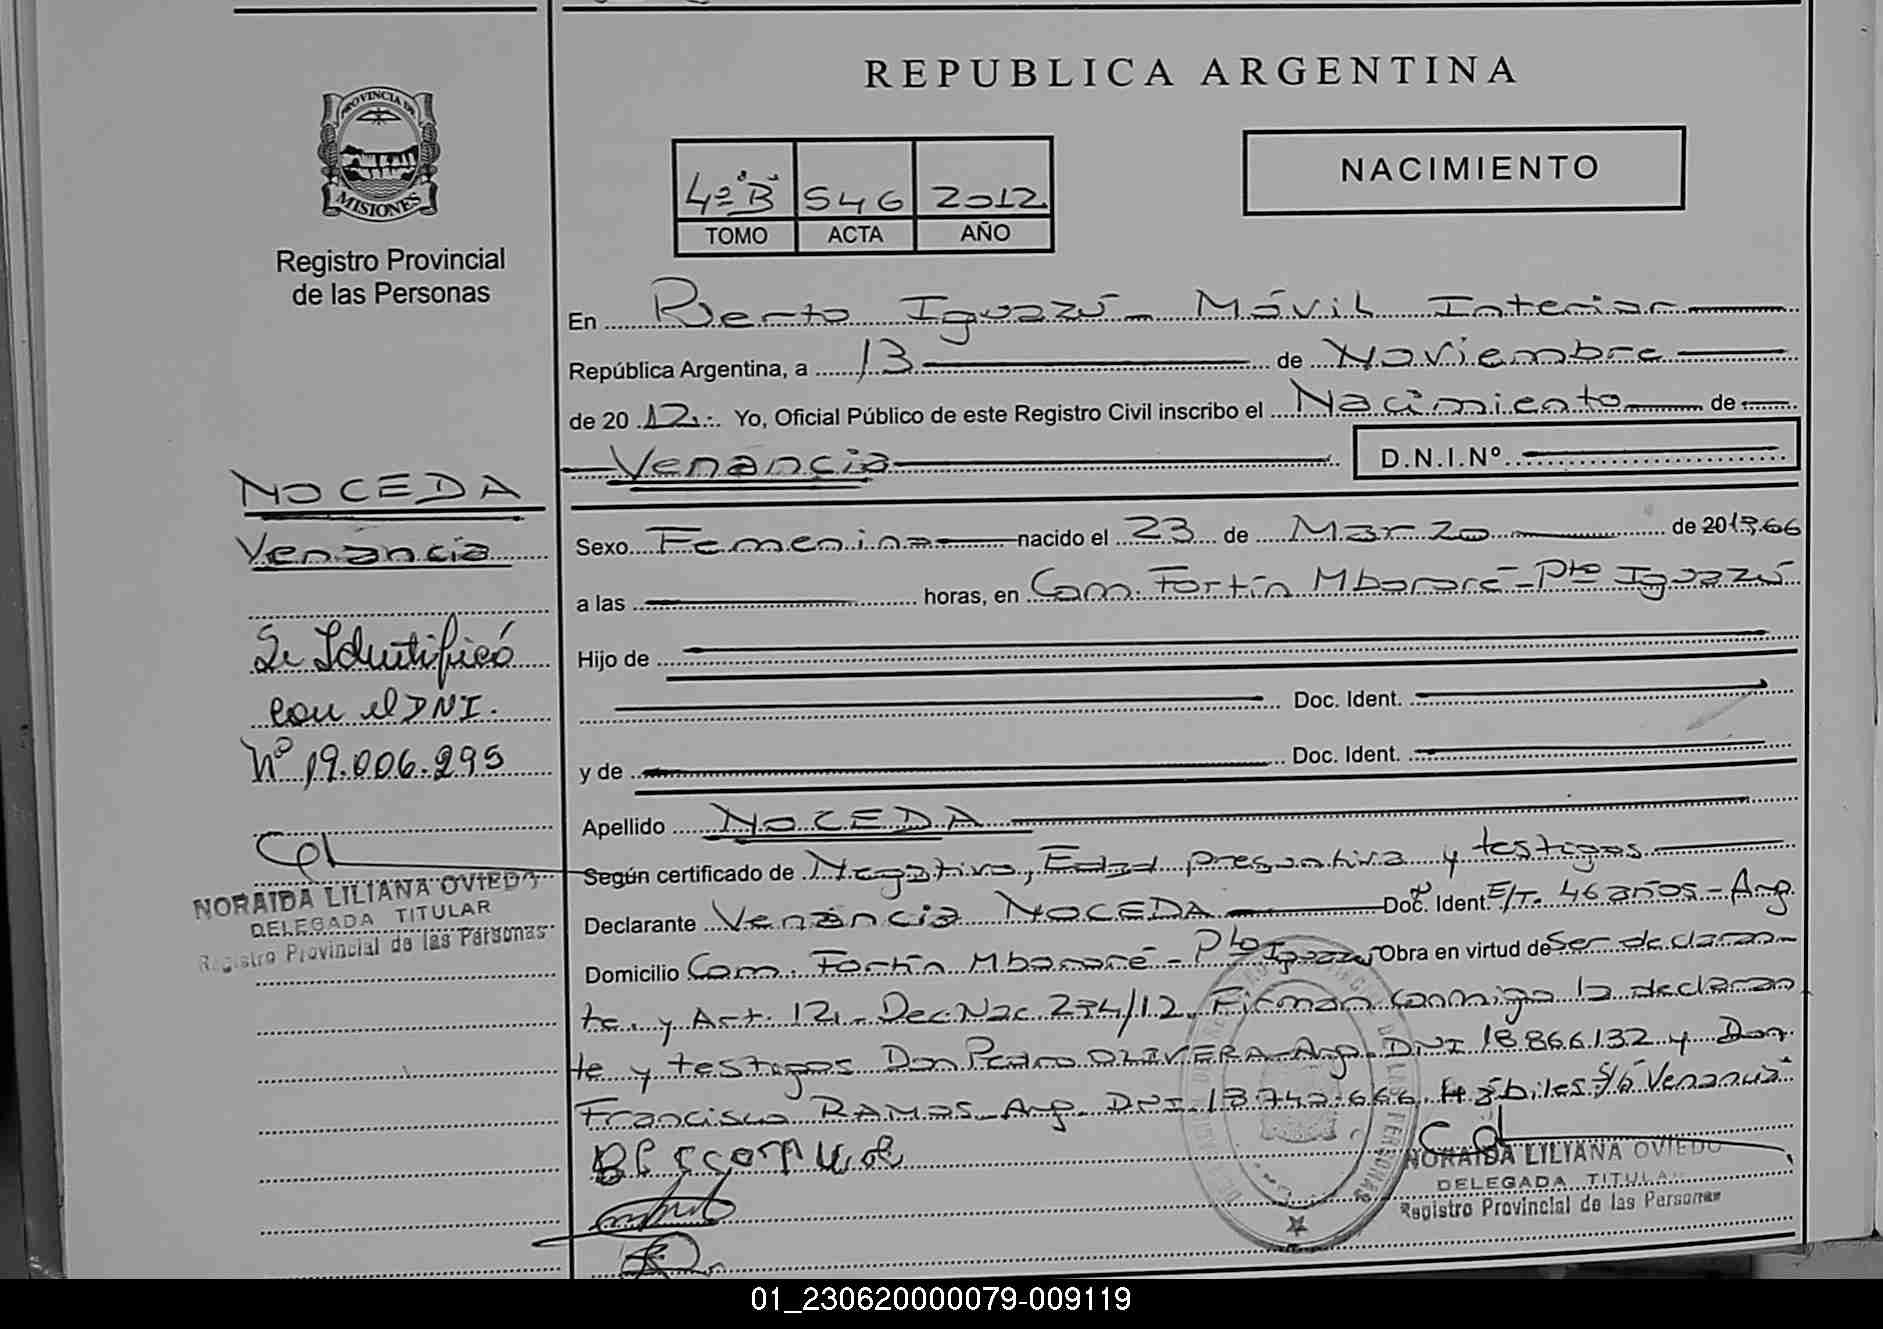 REPUBLICA ARGENTINA
PROVINCIA DE
MISIONES
Registro Provincial
de las Personas
NACIMIENTO
4º "B" 546 2012
TOMO ACTA AÑO
En Puerto Iguazú - Móvil Interior
República Argentina, a 13 de Noviembre
de 20 12. Yo, Oficial Público de este Registro Civil inscribo el Nacimiento de
Venancia D.N.I.Nº
NOCEDA
Venancia
Se Identificó
con el DNI.
Nº 19.006.295
NORAIDA LILIANA OVIEDO
DELEGADA TITULAR
Registro Provincial de las Personas
Sexo Femenina nacido el 23 de Marzo de 201966
a las horas, en Com. Fortín Mbororé - Pto Iguazú
Hijo de
Doc. Ident.
y de Doc. Ident.
Apellido NOCEDA
Según certificado de Negativo, Edad presuntiva y testigos
Declarante Venancia NOCEDA Doc. Ident. E/T. 46 años - Arg.
Domicilio Com. Fortín Mbororé - Pto Iguazú Obra en virtud de Ser declaran
te. y Art. 12, - Dec. Nac 234/12. Firman conmigo la declaran
te y testigos Don Pedro OLIVERA - Arg. DNI 18.866.132 y Don
Francisco RAMOS - Arg. DNI. 13.742.666 Hábiles S/b Venancia"
NORAIDA LILIANA OVIEDO
DELEGADA TITULAR
Registro Provincial de las Personas
01_230620000079-009119